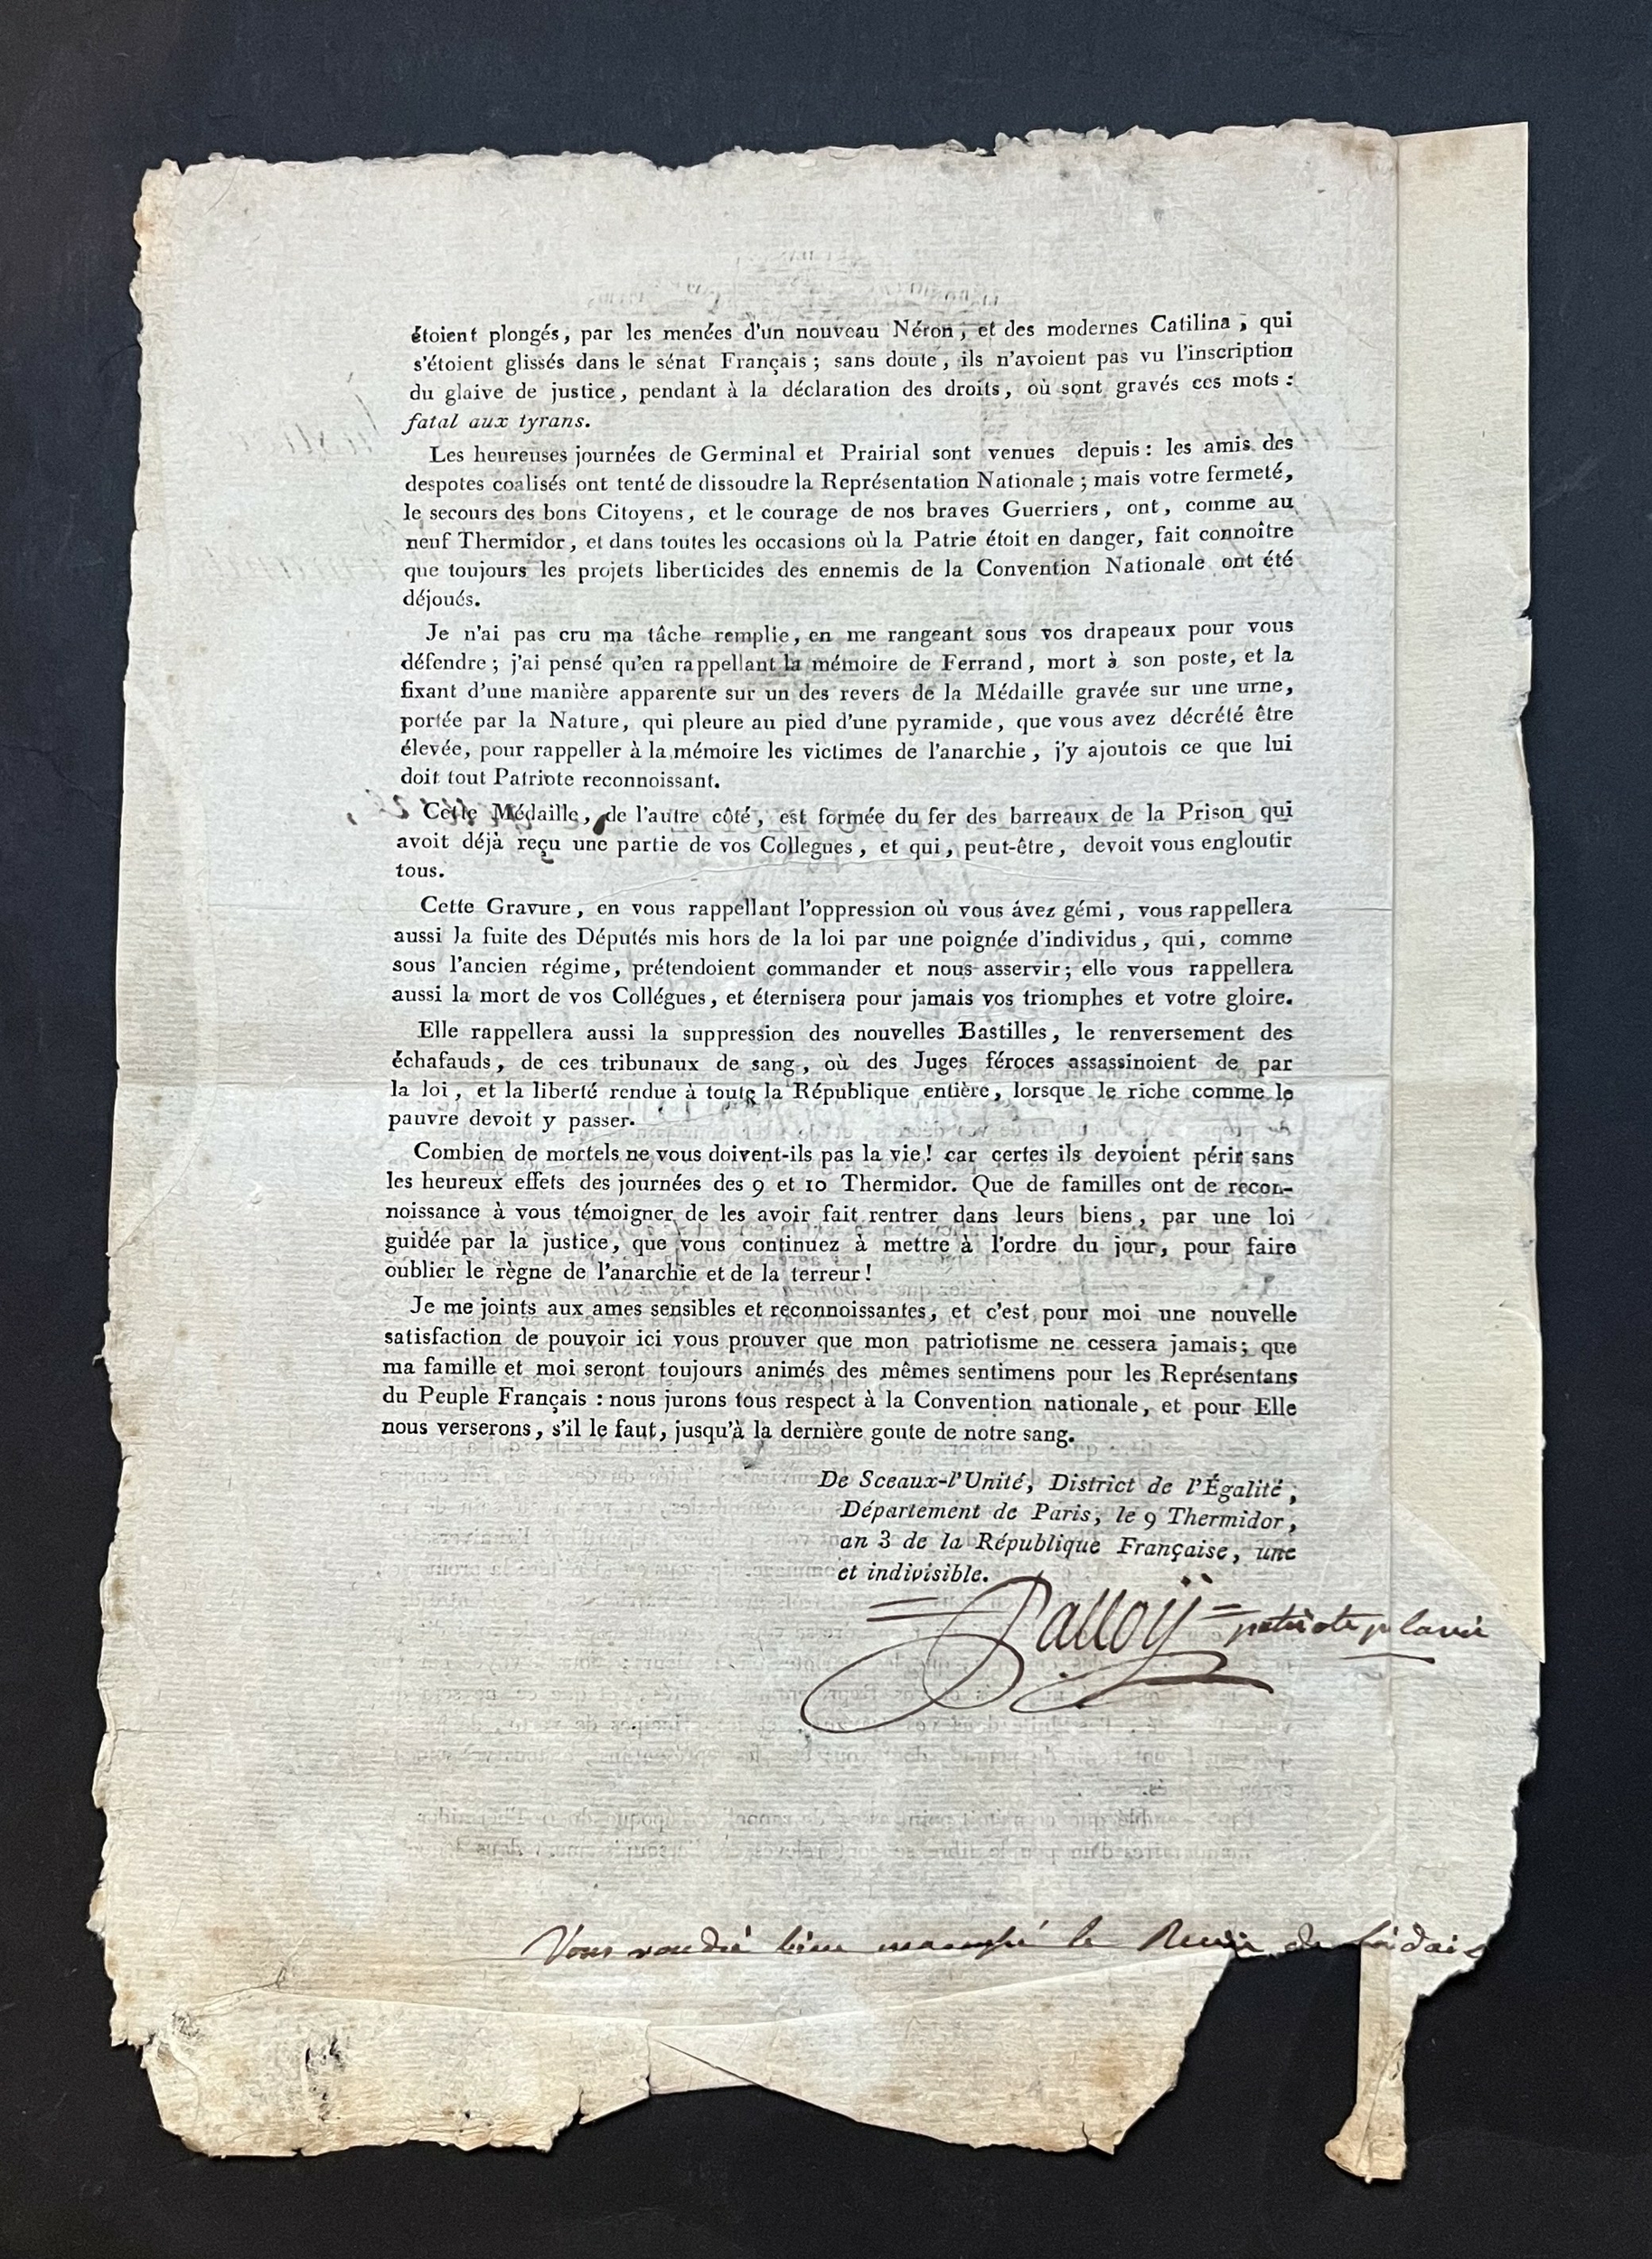 étoient plongés, par les menées d'un nouveau Néron, et des modernes Catilina, qui
s'étoient glissés dans le sénat Français ; sans doute, ils n'avoient pas vu l'inscription
du glaive de justice, pendant à la déclaration des droits, où sont gravés ces mots :
fatal aux tyrans.
Les heureuses journées de Germinal et Prairial sont venues depuis : les amis des
despotes coalisés ont tenté de dissoudre la Représentation Nationale ; mais votre fermeté,
le secours des bons Citoyens, et le courage de nos braves Guerriers, ont, comme au
neuf Thermidor, et dans toutes les occasions où la Patrie étoit en danger, fait connoître
que toujours les projets liberticides des ennemis de la Convention Nationale ont été
déjoués.
Je n'ai pas cru ma tâche remplie, en me rangeant sous vos drapeaux pour vous
défendre ; j'ai pensé qu'en rappellant la mémoire de Ferrand, mort à son poste, et la
fixant d'une manière apparente sur un des revers de la Médaille gravée sur une urne,
portée par la Nature, qui pleure au pied d'une pyramide, que vous avez décrété être
élevée, pour rappeller à la mémoire les victimes de l'anarchie, j'y ajoutois ce que lui
doit tout Patriote reconnoissant.
Cette Médaille, de l'autre côté, est formée du fer des barreaux de la Prison qui
avoit déjà reçu une partie de vos Collegues, et qui, peut-être, devoit vous engloutir
tous.
Cette Gravure, en vous rappellant l'oppression où vous ávez gémi, vous rappellera
aussi la fuite des Députés mis hors de la loi par une poignée d'individus, qui, comme
sous l'ancien régime, prétendoient commander et nous asservir ; elle vous rappellera
aussi la mort de vos Collégues, et éternisera pour jamais vos triomphes et votre gloire.
Elle rappellera aussi la suppression des nouvelles Bastilles, le renversement des
échafauds, de ces tribunaux de sang, où des Juges féroces assassinoient de par
la loi, et la liberté rendue à toute la République entière, lorsque le riche comme le
pauvre devoit y passer.
Combien de mortels ne vous doivent-ils pas la vie ! car certes ils devoient périr sans
les heureux effets des journées des 9 et 10 Thermidor. Que de familles ont de recon-
noissance à vous témoigner de les avoir fait rentrer dans leurs biens, par une loi
guidée par la justice, que vous continuez à mettre à l'ordre du jour, pour faire
oublier le règne de l'anarchie et de la terreur !
Je me joints aux ames sensibles et reconnoissantes, et c'est pour moi une nouvelle
satisfaction de pouvoir ici vous prouver que mon patriotisme ne cessera jamais ; que
ma famille et moi seront toujours animés des mêmes sentimens pour les Représentans
du Peuple Français : nous jurons tous respect à la Convention nationale, et pour Elle
nous verserons, s'il le faut, jusqu'à la dernière goute de notre sang.
De Sceaux-l'Unité, District de l'Égalité,
Département de Paris, le 9 Thermidor,
an 3 de la République Française, une
et indivisible.
=Palloÿ= patriote p la vie
Vous bien le de